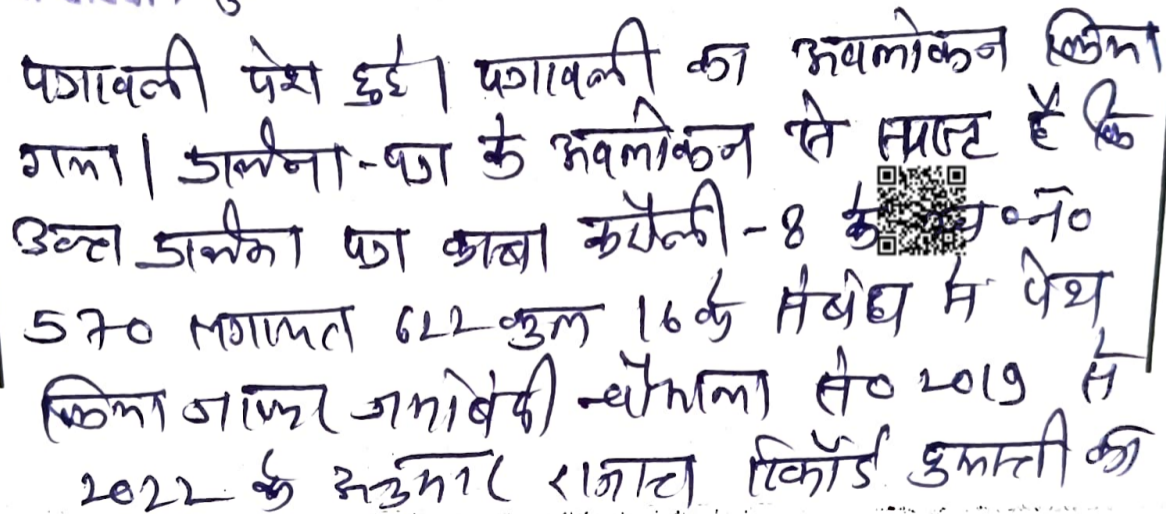 पत्रावली पेश हुई। पत्रावली का अवलोकन किया
गया। प्रार्थना-पत्र के अवलोकन से स्पष्ट है कि
उक्त प्रार्थना पत्र कस्बा करौली-8 के न०
570 लगायत 622 कुल 16 के संबंध में पेश
किया जाकर जमाबंदी चौसाला सं० 2019 से
2022 के अनुसार राजस्व रिकॉर्ड की